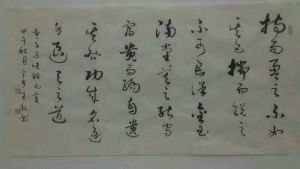 持而盈之不如
其已揣而銳之
不可長保金玉
滿堂莫之能守
富貴而驕自遺
其咎功成名遂
身退天之道
甲午